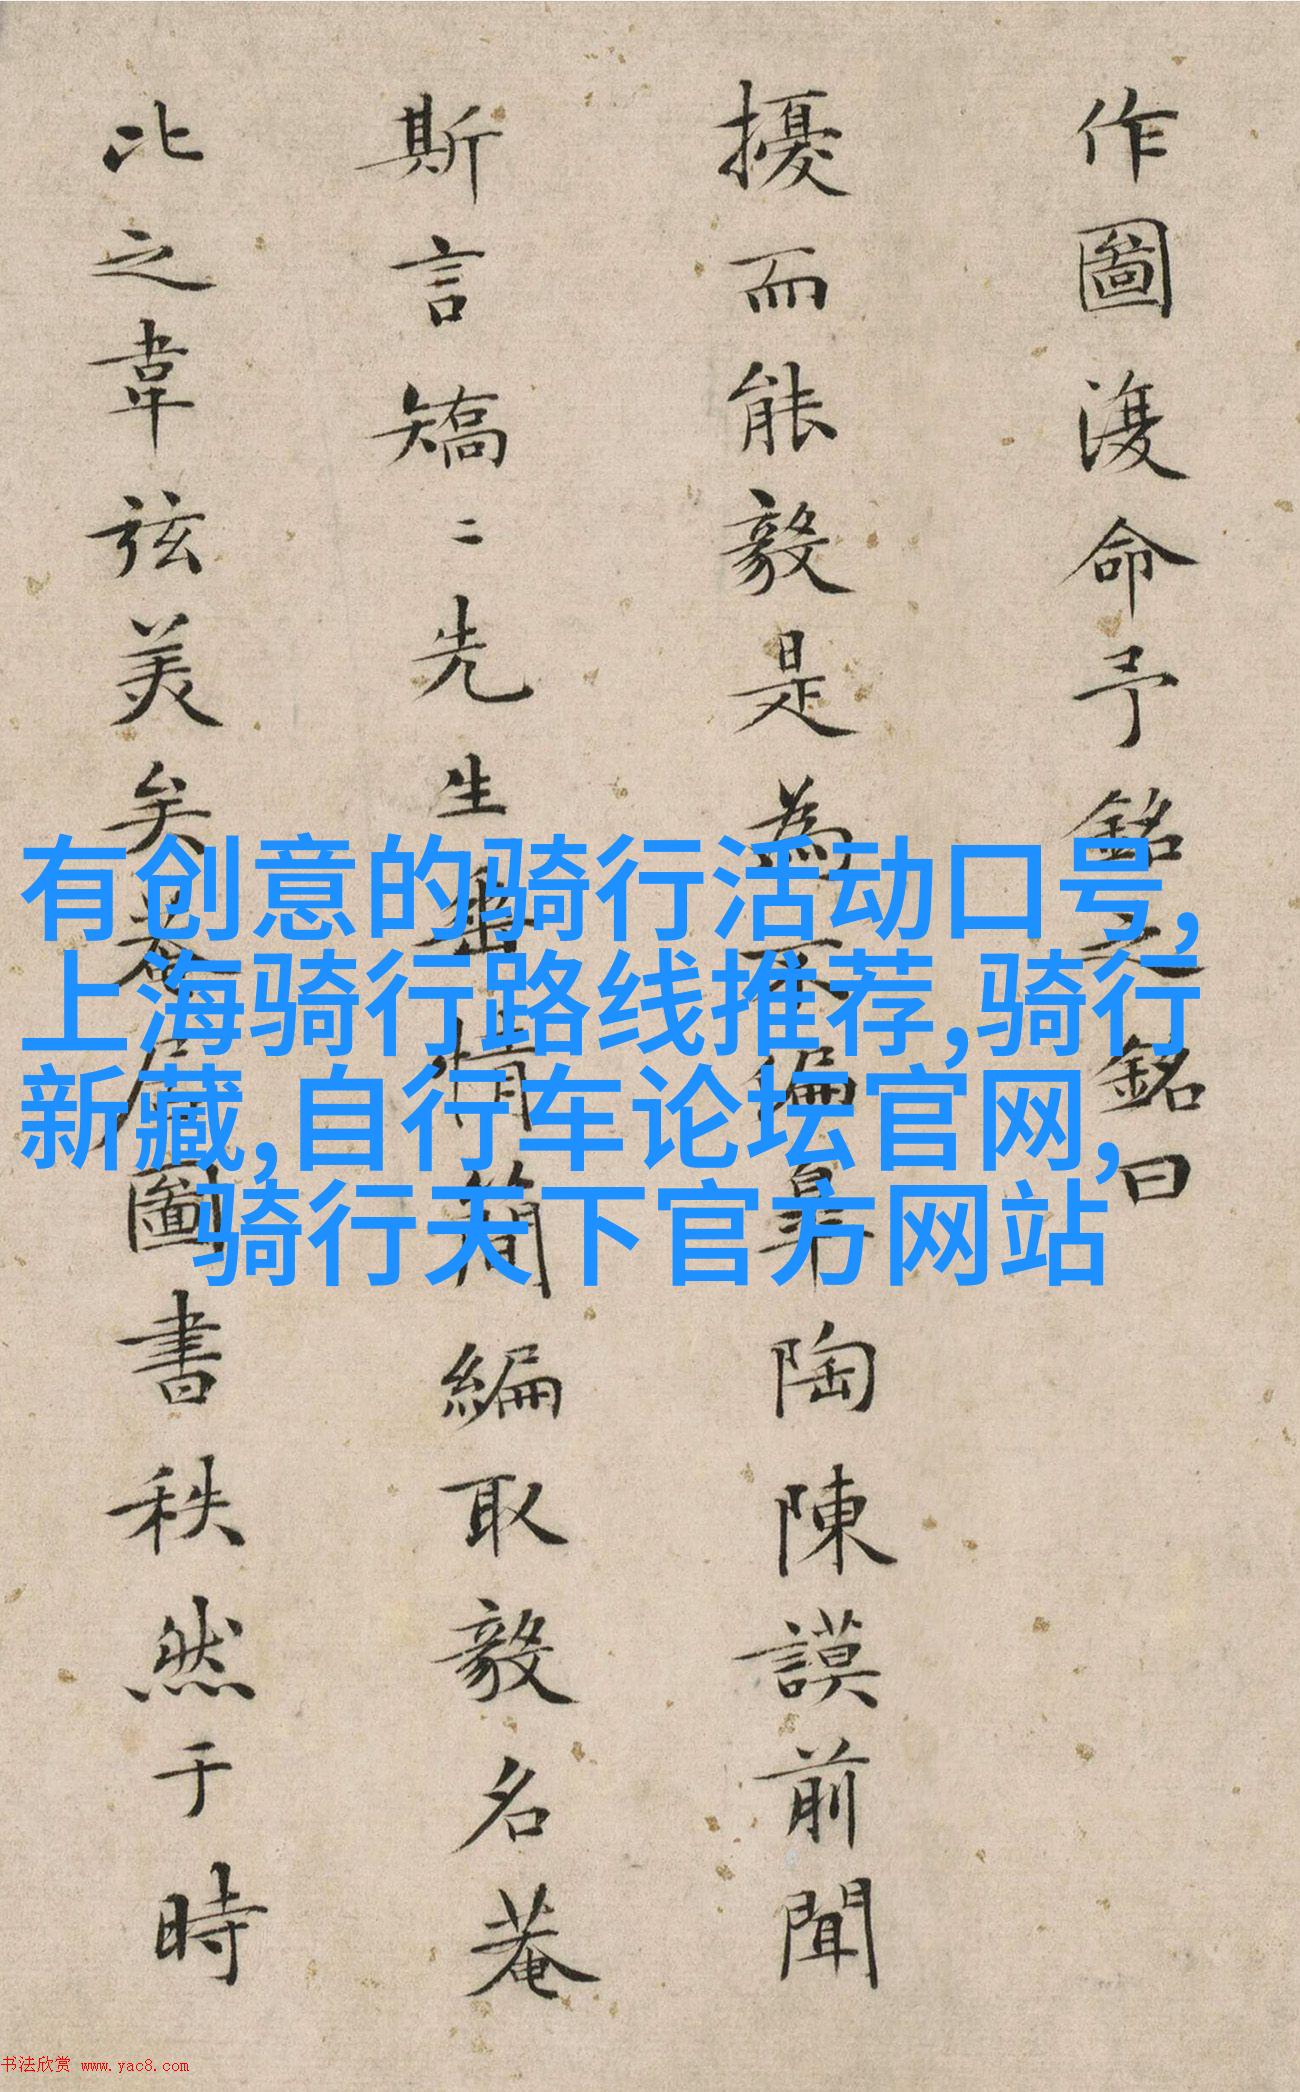 作圖復命予銘之銘曰
擾而能毅是為不偏皐陶陳謨前聞
斯言矯二先生幸情簡編取毅名菴
比之韋弦美矣菴居圖書秩然于時
有创意的骑行活动口号,
上海骑行路线推荐,骑行
新藏,自行车论坛官网,
骑行天下官方网站
书法欣赏 www.yac8.com